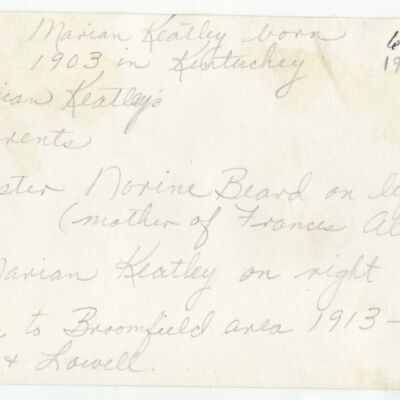 Marian Keatley born
1903 in Kentuckey
19
ian Keatley's
rents
ster Norine Beard on le
(mother of Frances Al
Marian Keatley on right
to Broomfield area 1913-
& Lowell.